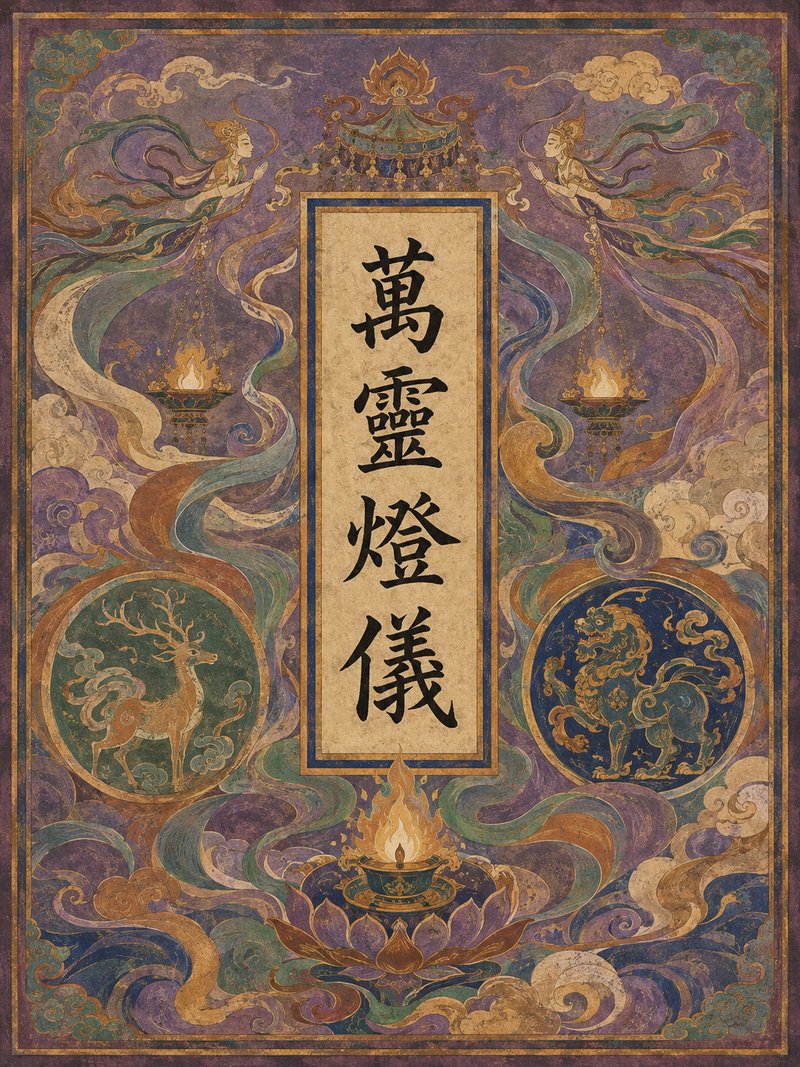 萬靈燈儀